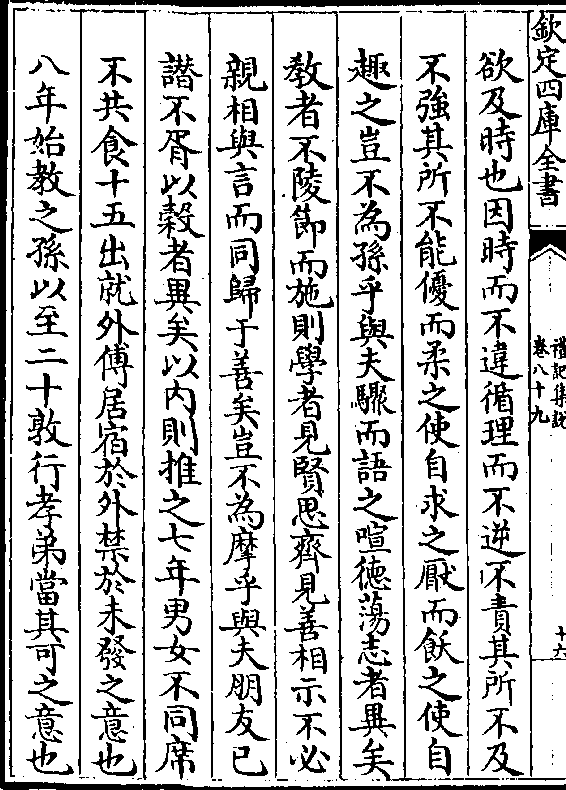 欽定四庫全書
禮記集説
卷八十九
十六
欲及時也因時而不違循理而不逆不責其所不及
不強其所不能優而柔之使自求之厭而飫之使自
趣之豈不為孫乎與夫驟而語之喧徳蕩志者異矣
教者不陵節而施則學者見賢思齊見善相示不必
親相與言而同歸于善矣豈不為摩乎與夫朋友已
譛不胥以榖者異矣以内則推之七年男女不同席
不共食十五出就外傅居宿於外禁於未發之意也
八年始教之孫以至二十敦行孝弟當其可之意也